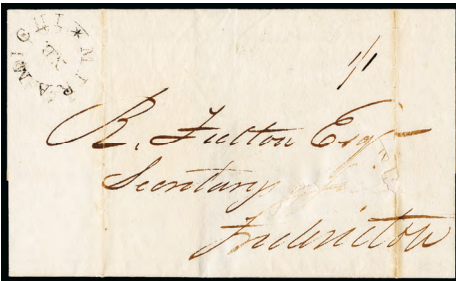 MIRAMICHI
1/1
R. Fulton Esqr
Secretary
Fredericton